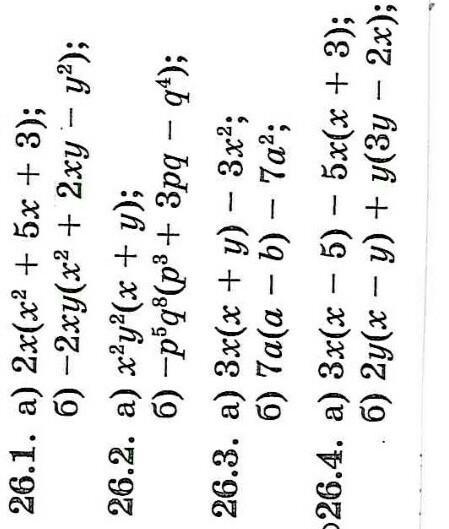 26.1. а) 2x(x² + 5x + 3);
б) −2xy(x² + 2xy − y²);
26.2. а) x²y²(x + y);
б) −p⁵q⁸(p³ + 3pq − q⁴);
26.3. а) 3x(x + y) − 3x²;
б) 7a(a − b) − 7a²;
26.4. а) 3x(x − 5) − 5x(x + 3);
б) 2y(x − y) + y(3y − 2x);